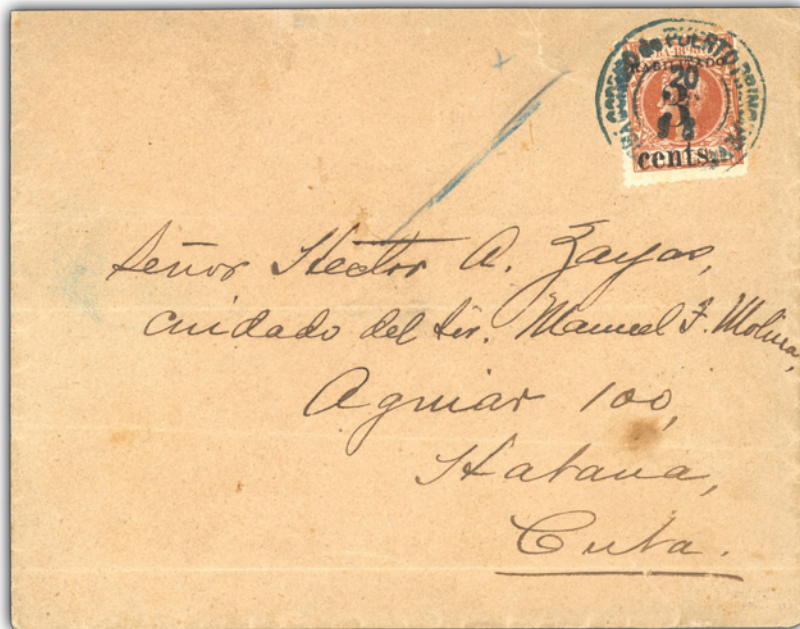 CORREO de PUERTO PRINCIPE
HABILITADO
20
3
cents.
Señor Hector A. Zayas,
cuidado del Sr. Manuel F. Molina,
Aguiar 100,
Habana,
Cuba.